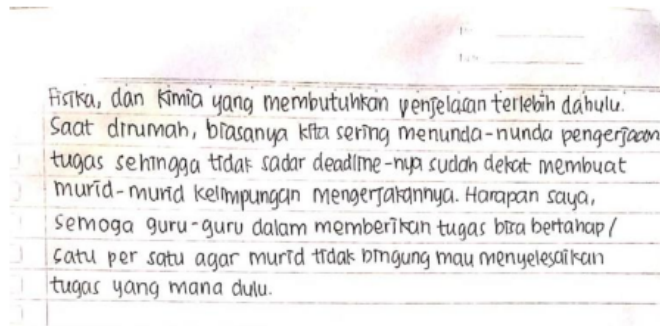 Fisika, dan kimia yang membutuhkan penjelasan terlebih dahulu.
Saat dirumah, biasanya kita sering menunda-nunda pengerjaan
tugas sehingga tidak sadar deadline-nya sudah dekat membuat
murid-murid kelimpungan mengerjakannya. Harapan saya,
semoga guru-guru dalam memberikan tugas bisa bertahap/
satu per satu agar murid tidak bingung mau menyelesaikan
tugas yang mana dulu.